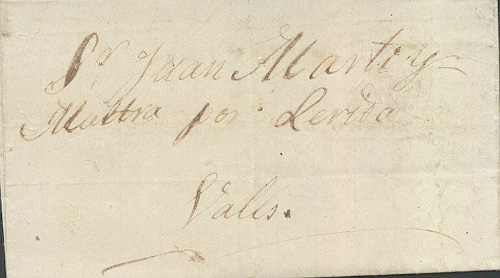 Sr. Juan Marti y
Mattra por Lerida
Valls.